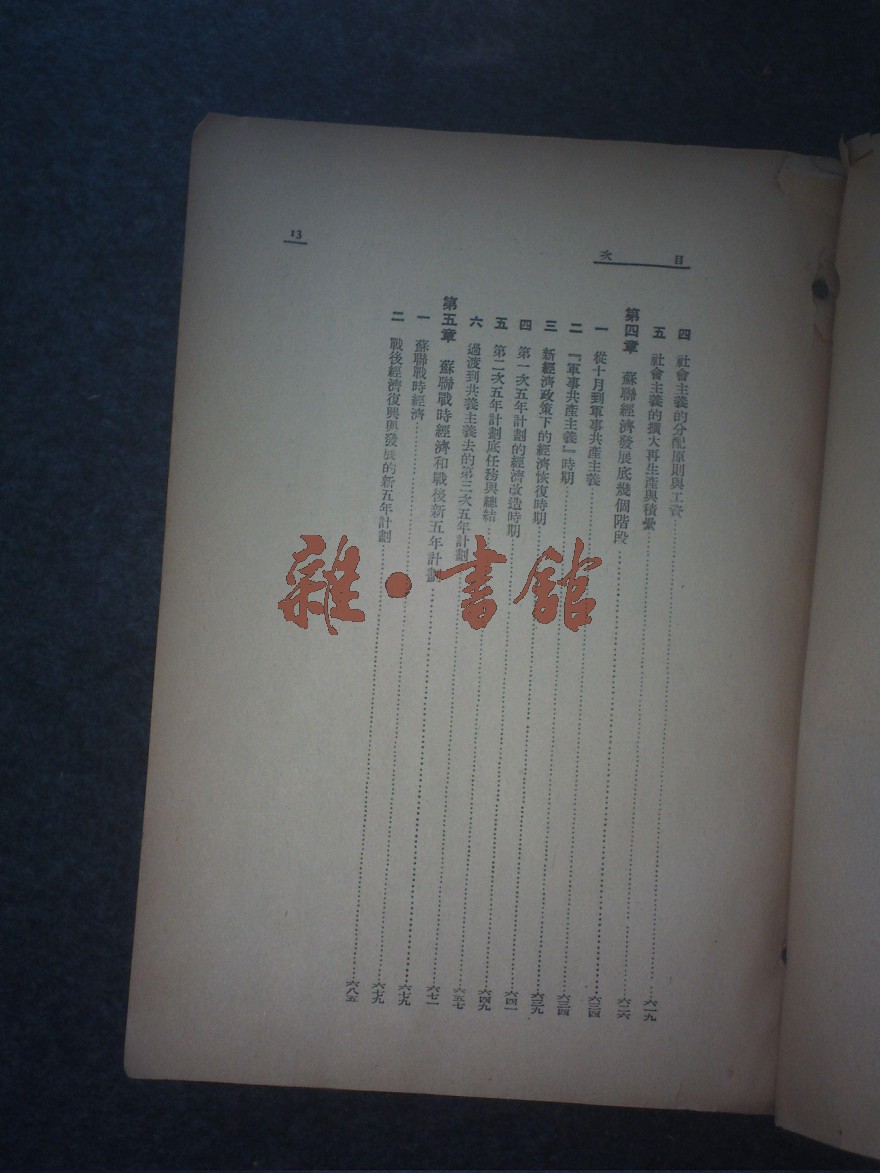 目次
13
四 社會主義的分配原則與工資……六一九
五 社會主義的擴大再生產與積彙……六二六
第四章 蘇聯經濟發展底幾個階段……六三四
一 從十月到軍事共產主義……六三四
二 『軍事共產主義』時期……六三九
三 新經濟政策下的經濟恢復時期……六四一
四 第一次五年計劃的經濟改造時期……六四九
五 第二次五年計劃底任務與總結……六五七
六 過渡到共義主義去的第三次五年計劃……六七一
第五章 蘇聯戰時經濟和戰後新五年計劃……六七九
一 蘇聯戰時經濟……六七九
二 戰後經濟復興與發展的新五年計劃……六八五
雜·書館